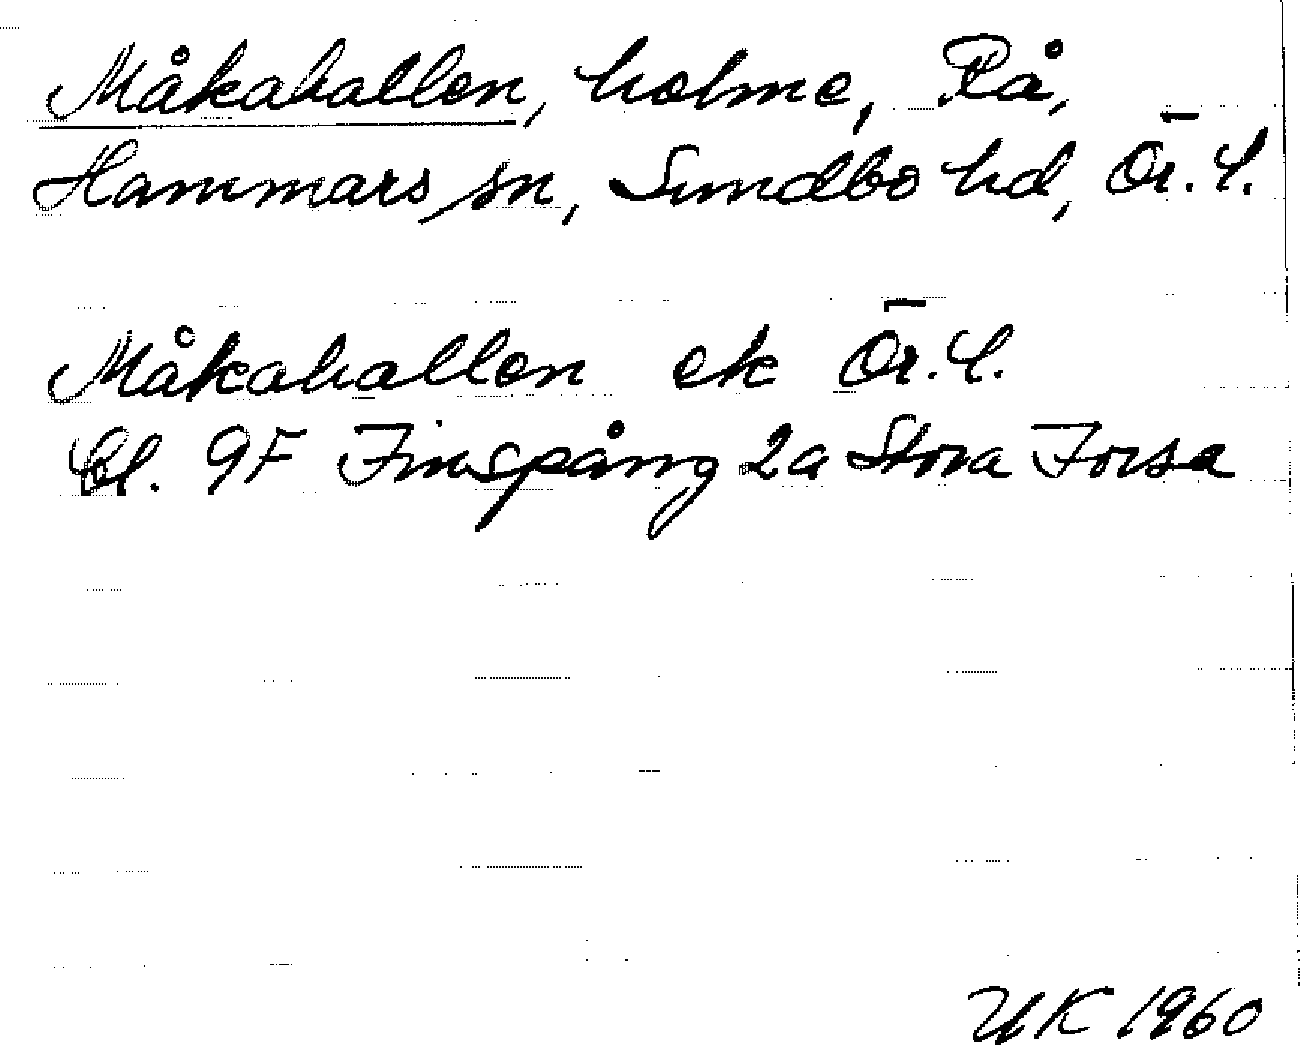 Måkahallen, holme, Rå,
Hammars sn, Sundbo hd, Ör. L.
Måkahallen ek Ör. L.
Bl. 9F Finspång 2a Stora Forsa
UK 1960